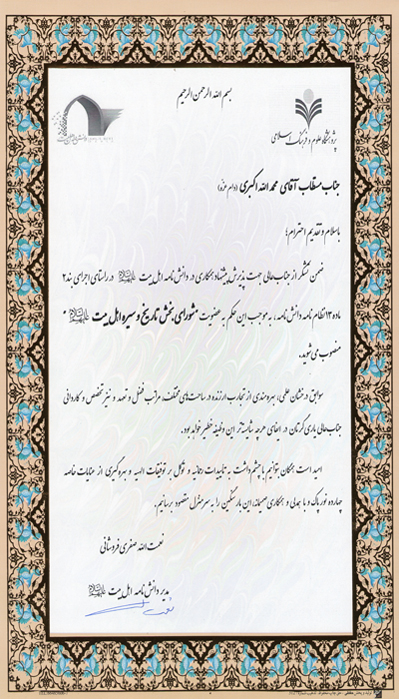 بسم الله الرحمن الرحیم
پژوهشگاه علوم و فرهنگ اسلامی
جناب مستطاب آقای محمد الله اکبری (دام عزّه)
با سلام و تقدیم احترام؛
ضمن تشکر از جنابعالی جهت پذیرش پیشنهاد همکاری در دانش نامه اهل بیت در راستای اجرای بند ۲
ماده ۱۳ نظام نامه دانش نامه، به موجب این حکم به عضویت "شورای بخش تاریخ و سیره اهل بیت"
منصوب می شوید.
سوابق درخشان علمی، بهره مندی از تجارب ارزنده در ساحت های مختلف، مراتب فضل و تعهد و نیز تخصص و کاردانی
جنابعالی یاری گرتان در ایفای هرچه شایسته تر این وظیفه خطیر خواهد بود.
امید است همگان بتوانیم با چشم داشت به تأییدات ربانیه و توکل بر توفیقات الهیه و بهره گیری از عنایات خاصه
چهارده نور پاک و با همدلی و همکاری صمیمانه، این بار سنگین را به سرمنزل مقصود برسانیم.
نعمت الله صفری فروشانی
مدیر دانش نامه اهل بیت